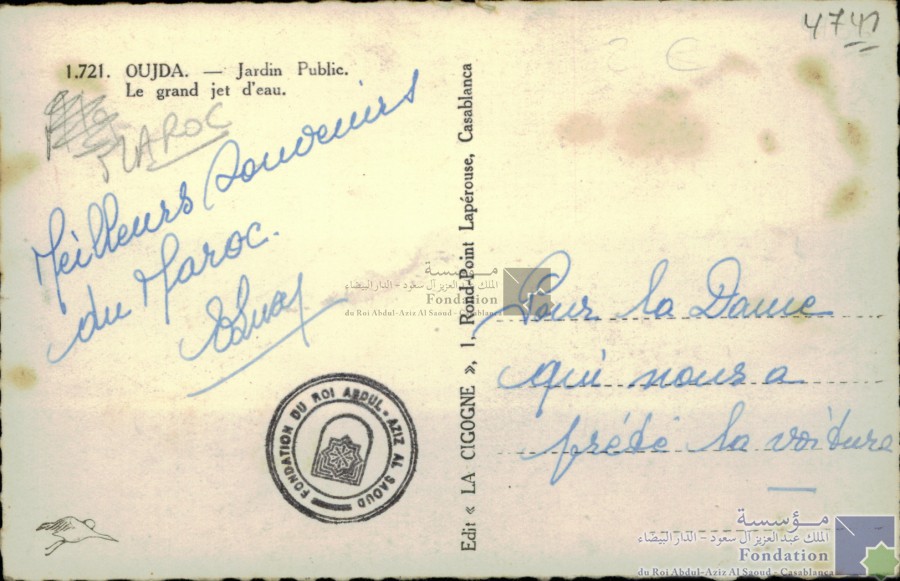 4741
1.721. OUJDA. — Jardin Public.
Le grand jet d'eau.
MAROC
Meilleurs Souvenirs
du Maroc.
Edit « LA CIGOGNE », 1, Rond-Point Lapérouse, Casablanca
Pour la Dame
qui nous a
prété la voiture
FONDATION DU ROI ABDUL-AZIZ AL SAOUD
مؤسسة
الملك عبد العزيز آل سعود - الدار البيضاء
Fondation
du Roi Abdul-Aziz Al Saoud - Casablanca
مؤسسة
الملك عبد العزيز آل سعود - الدار البيضاء
Fondation
du Roi Abdul-Aziz Al Saoud - Casablanca